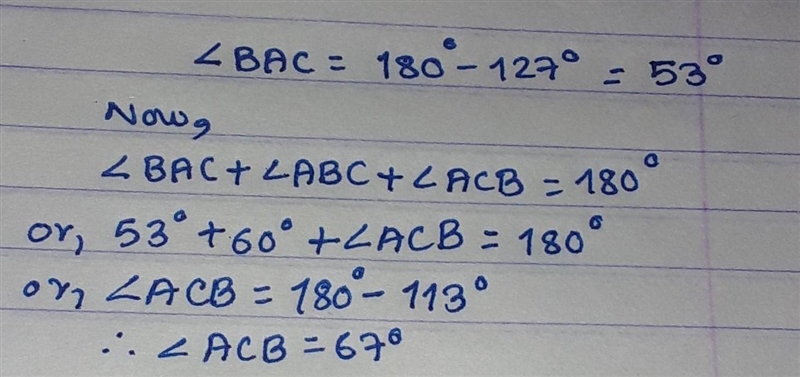 ∠BAC = 180° - 127° = 53°
Now,
∠BAC + ∠ABC + ∠ACB = 180°
or, 53° + 60° + ∠ACB = 180°
or, ∠ACB = 180° - 113°
∴ ∠ACB = 67°